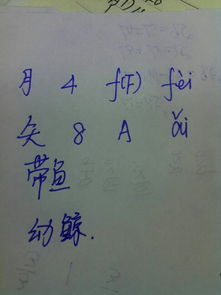 月 4 f(F) fèi
矢 8 A ǎi
带鱼
幼鲸.